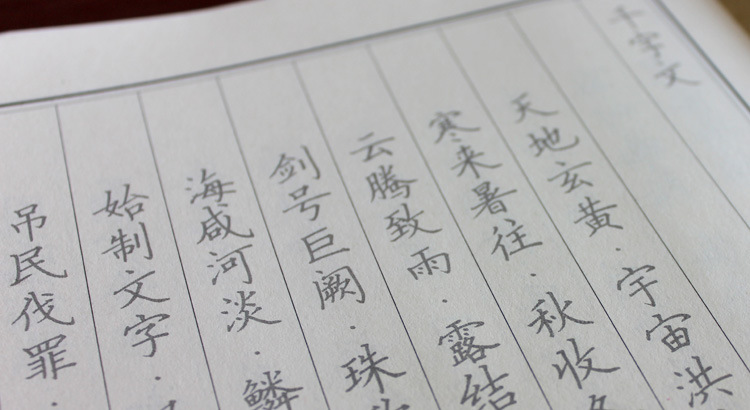 千字文
天地玄黄·宇宙洪
寒来暑往·秋收
云腾致雨·露结
剑号巨阙·珠
海咸河淡·鳞
始制文字·
吊民伐罪·